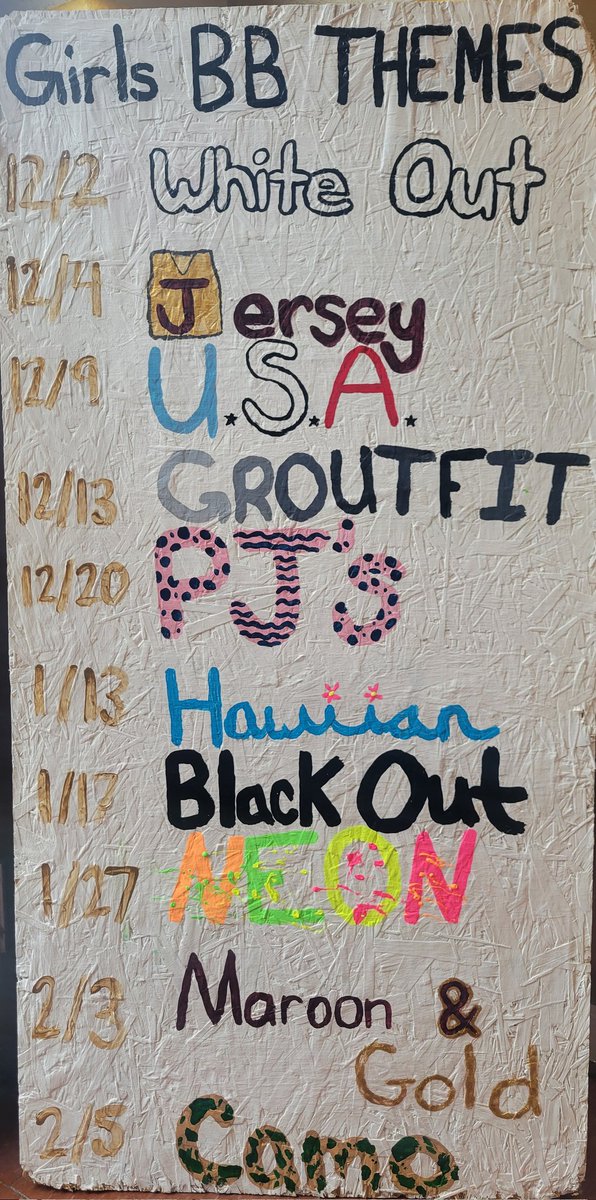 Girls BB THEMES
12/2 White Out
12/4 Jersey
12/9 U.S.A.
12/13 GROUTFIT
12/20 PJ's
1/13 Hawiian
1/17 Black Out
1/27 NEON
2/3 Maroon &
Gold
2/5 Camo